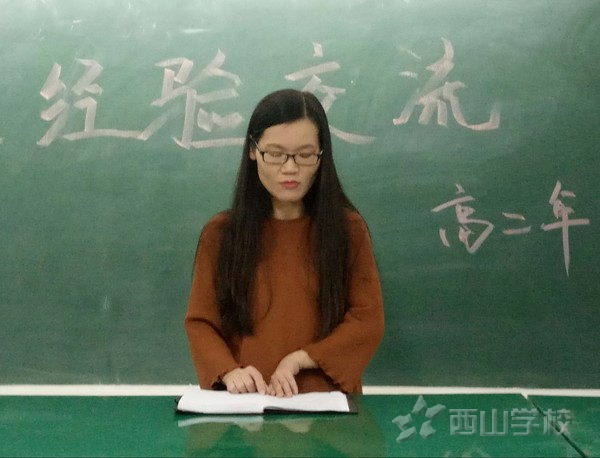 经验交流
高二年
西山学校